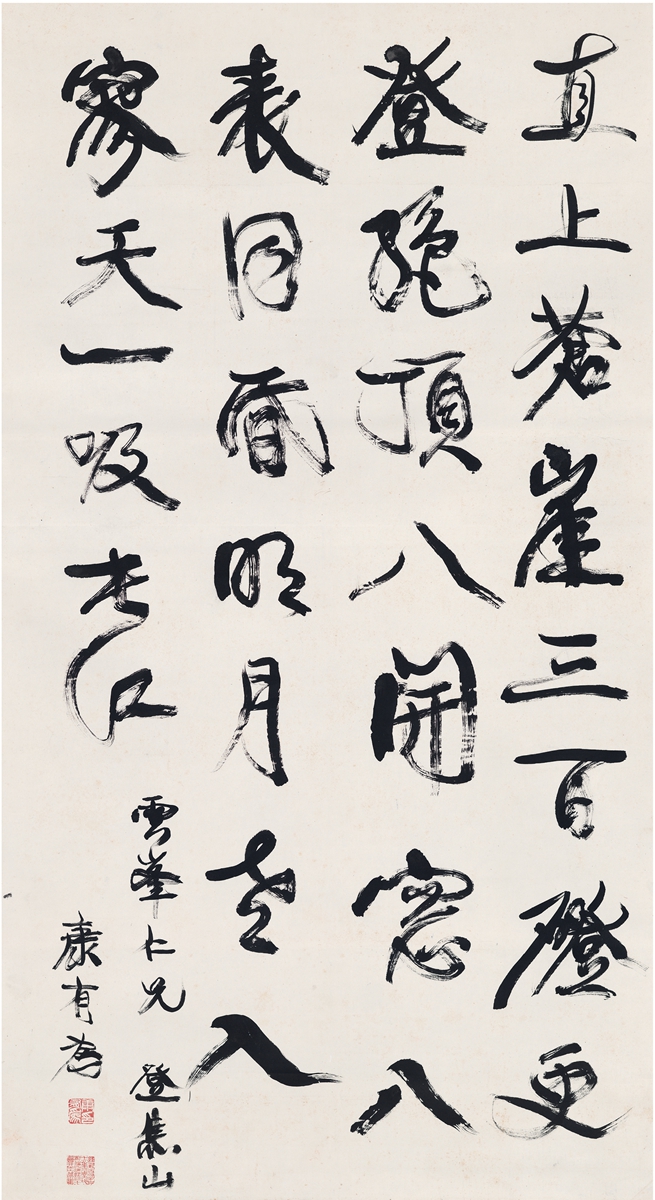 直上蒼崖三百磴更
登絶頂八開窓八
表同昏明月入
寥天一吸長江
雲峯仁兄 登焦山
康有為